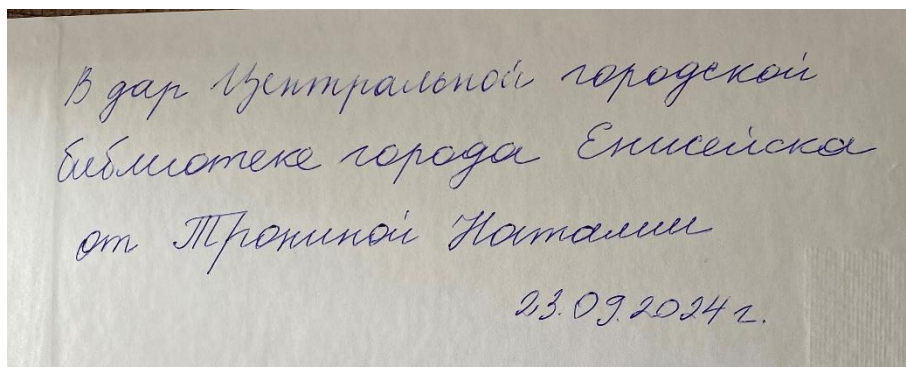 В дар Центральной городской
библиотеке города Енисейска
от Трониной Наталии
23.09.2024 г.